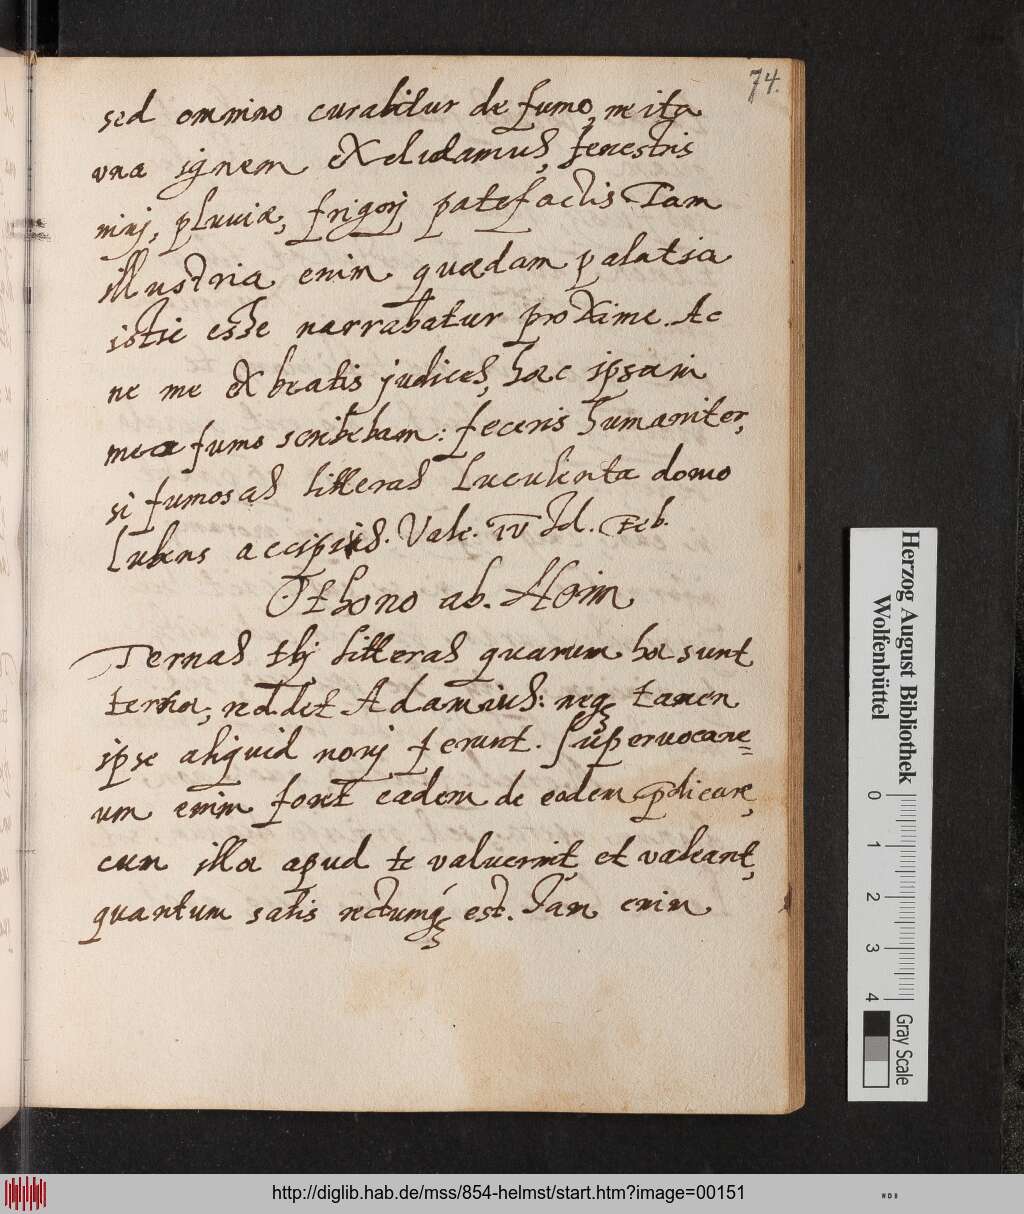 74.
sed omnino curabitur de fumo, ne ita
una ignem excludamus, fenestris
nivi, pluviæ, frigori patefactis. Tam
illustria enim quædam palatia
istic esse narrabatur proxime. Ac
ne me ex beatis judices, hæc ipsam
mea fumo scribebam: feceris humaniter,
si fumosas litteras luculenta domo
lubens accipies. Vale. IV Id. Feb.
Othono ab. Hoim
Ternas tbj litteras quarum hæ sunt
ternæ, reddet Adamius: neq tamen
ipse aliquid novj ferunt. Supervocane=
um enim foret eadem de eodem pdicare,
cum illa apud te valuerint, et valeant,
quantum satis rectumq est. Jam enim
Herzog August Bibliothek
Wolfenbüttel
0 1 2 3 4
Gray Scale
http://diglib.hab.de/mss/854-helmst/start.htm?image=00151